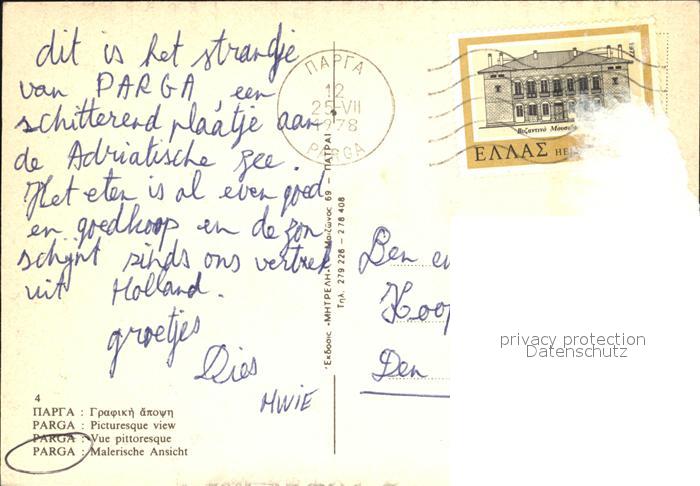 dit is het strandje
van PARGA een
schitterend plaatje aan
de Adriatische zee.
Het eten is al even goed
en goedkoop en de zon
schijnt sinds ons vertrek
uit Holland.
groetjes
Dies
MWIE
4
ΠΑΡΓΑ : Γραφική ἄποψη
PARGA : Picturesque view
PARGA : Vue pittoresque
PARGA : Malerische Ansicht
ΠΑΡΓΑ
12
25-VII
1978
PARGA
Ἔκδοσις «ΜΗΤΡΕΛΗ» Μαιζῶνος 69 - ΠΑΤΡΑΙ
Τηλ. 279 226 - 278 408
1977
Βυζαντινό Μουσεῖο
ΕΛΛΑΣ HE
Ben en
Koop
Den
privacy protection
Datenschutz